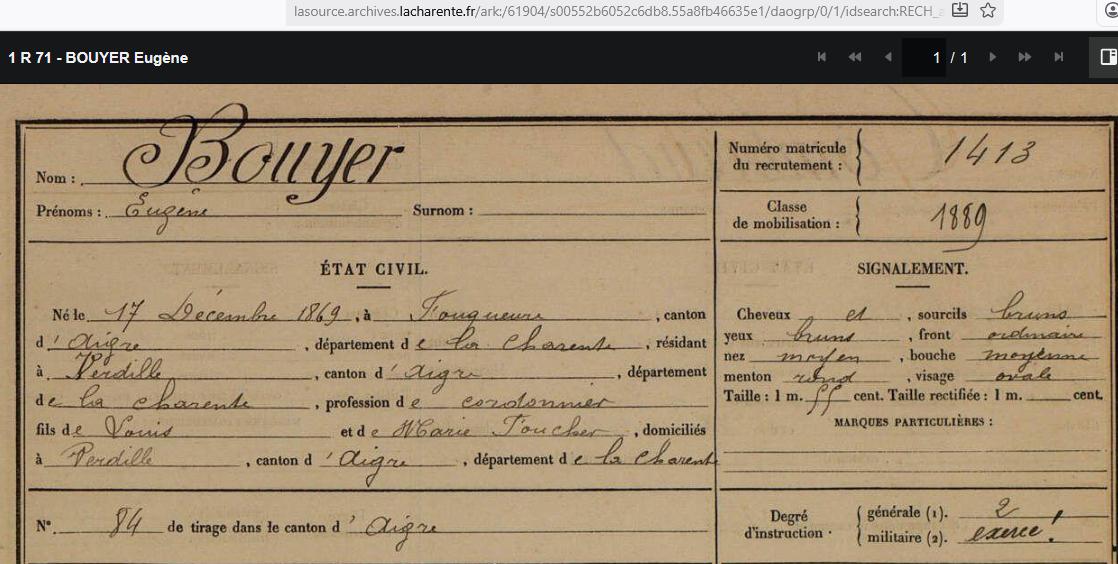 lasource.archives.lacharente.fr/ark:/61904/s00552b6052c6db8.55a8fb46635e1/daogrp/0/1/idsearch:RECH_
1 R 71 - BOUYER Eugène
1 / 1
Nom : Bouyer
Prénoms : Eugène Surnom :
Numéro matricule du recrutement : 1413
Classe de mobilisation : 1889
ÉTAT CIVIL.
Né le 17 Décembre 1869, à Fouqueure, canton
d'Aigre, département de la Charente, résidant
à Verdille, canton d'Aigre, département
de la Charente, profession de cordonnier
fils de Louis et de Marie Foucher, domiciliés
à Verdille, canton d'Aigre, département de la Charente
N° 84 de tirage dans le canton d'Aigre
SIGNALEMENT.
Cheveux et, sourcils bruns
yeux bruns, front ordinaire
nez moyen, bouche moyenne
menton rond, visage ovale
Taille : 1 m. 55 cent. Taille rectifiée : 1 m. cent.
MARQUES PARTICULIÈRES :
Degré d'instruction. générale (1). 2
militaire (2). exercé !